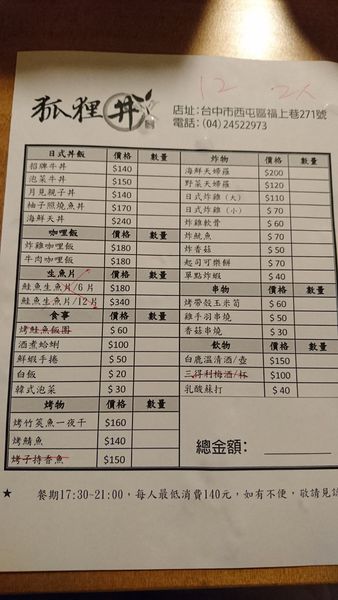 狐狸丼
12 2人
店址:台中市西屯區福上巷271號
電話:(04)24522973
日式丼飯 價格 數量
招牌牛丼 $140
泡菜牛丼 $150
月見親子丼 $140
柚子照燒魚丼 $170
海鮮天丼 $240
咖哩飯 價格 數量
炸雞咖哩飯 $180
牛肉咖哩飯 $180
生魚片 價格 數量
鮭魚生魚片/6片 $180
鮭魚生魚片/12片 $340
食事 價格 數量
烤鮭魚飯糰 $ 60
酒煮蛤蜊 $100
鮮蝦手捲 $ 50
白飯 $ 20
韓式泡菜 $ 30
烤物 價格 數量
烤竹筴魚一夜干 $160
烤鯖魚 $140
烤子持香魚 $150
炸物 價格 數量
海鮮天婦羅 $200
野菜天婦羅 $120
日式炸雞(大) $110
日式炸雞(小) $ 70
炸雞軟骨 $ 60
炸魷魚 $ 70
炸香菇 $ 50
起司可樂餅 $ 70
單點炸蝦 $ 40
串物 價格 數量
烤帶殼玉米筍 $ 60
雞手羽串燒 $ 50
香菇串燒 $ 30
飲物 價格 數量
白鹿溫清酒/壺 $150
三得利梅酒/杯 $100
乳酸蘇打 $ 40
總金額:
★ 餐期17:30-21:00,每人最低消費140元,如有不便,敬請見諒